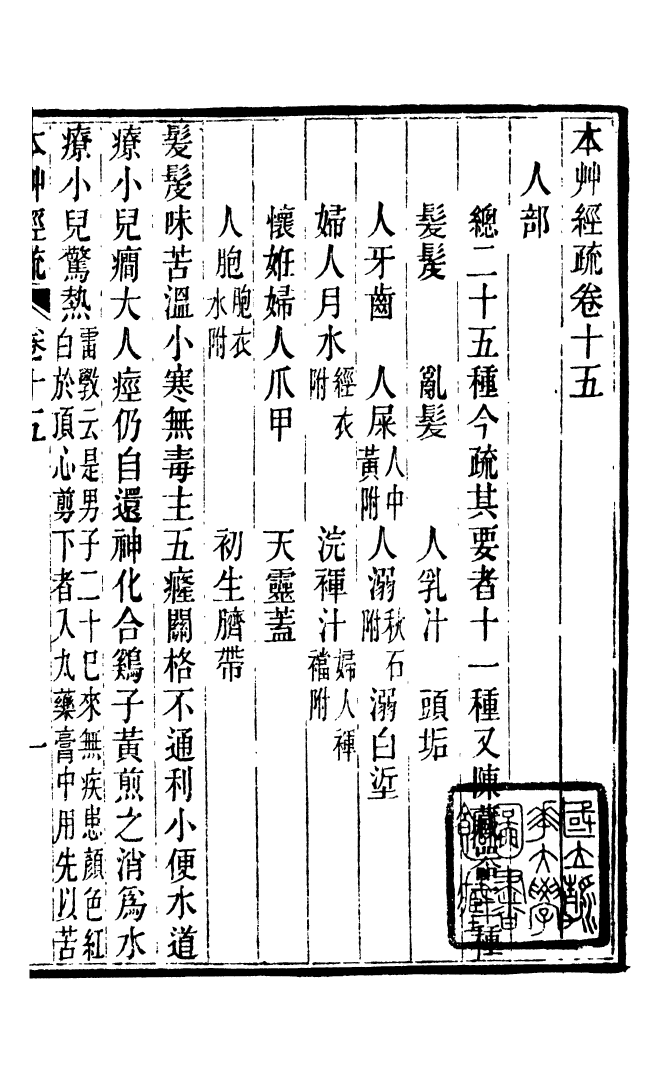 本艸經疏卷十五
人部
總二十五種今疏其要者十一種又陳藏種
髮髲 亂髮 人乳汁 頭垢
人牙齒 人屎人中黃附 人溺秋石附 溺白垽
婦人月水經衣附 浣褌汁婦人褌襠附
懷姙婦人爪甲 天靈蓋
人胞胞衣水附 初生臍帶
髮髲味苦溫小寒無毒主五癃關格不通利小便水道
療小兒癇大人痙仍自還神化合鷄子黃煎之消爲水
療小兒驚熱雷斆云是男子二十巳來無疾患顏色紅
白於頂心剪下者入丸藥膏中用先以苦
本艸經疏 卷十五 一
國立清華大學圖書館藏